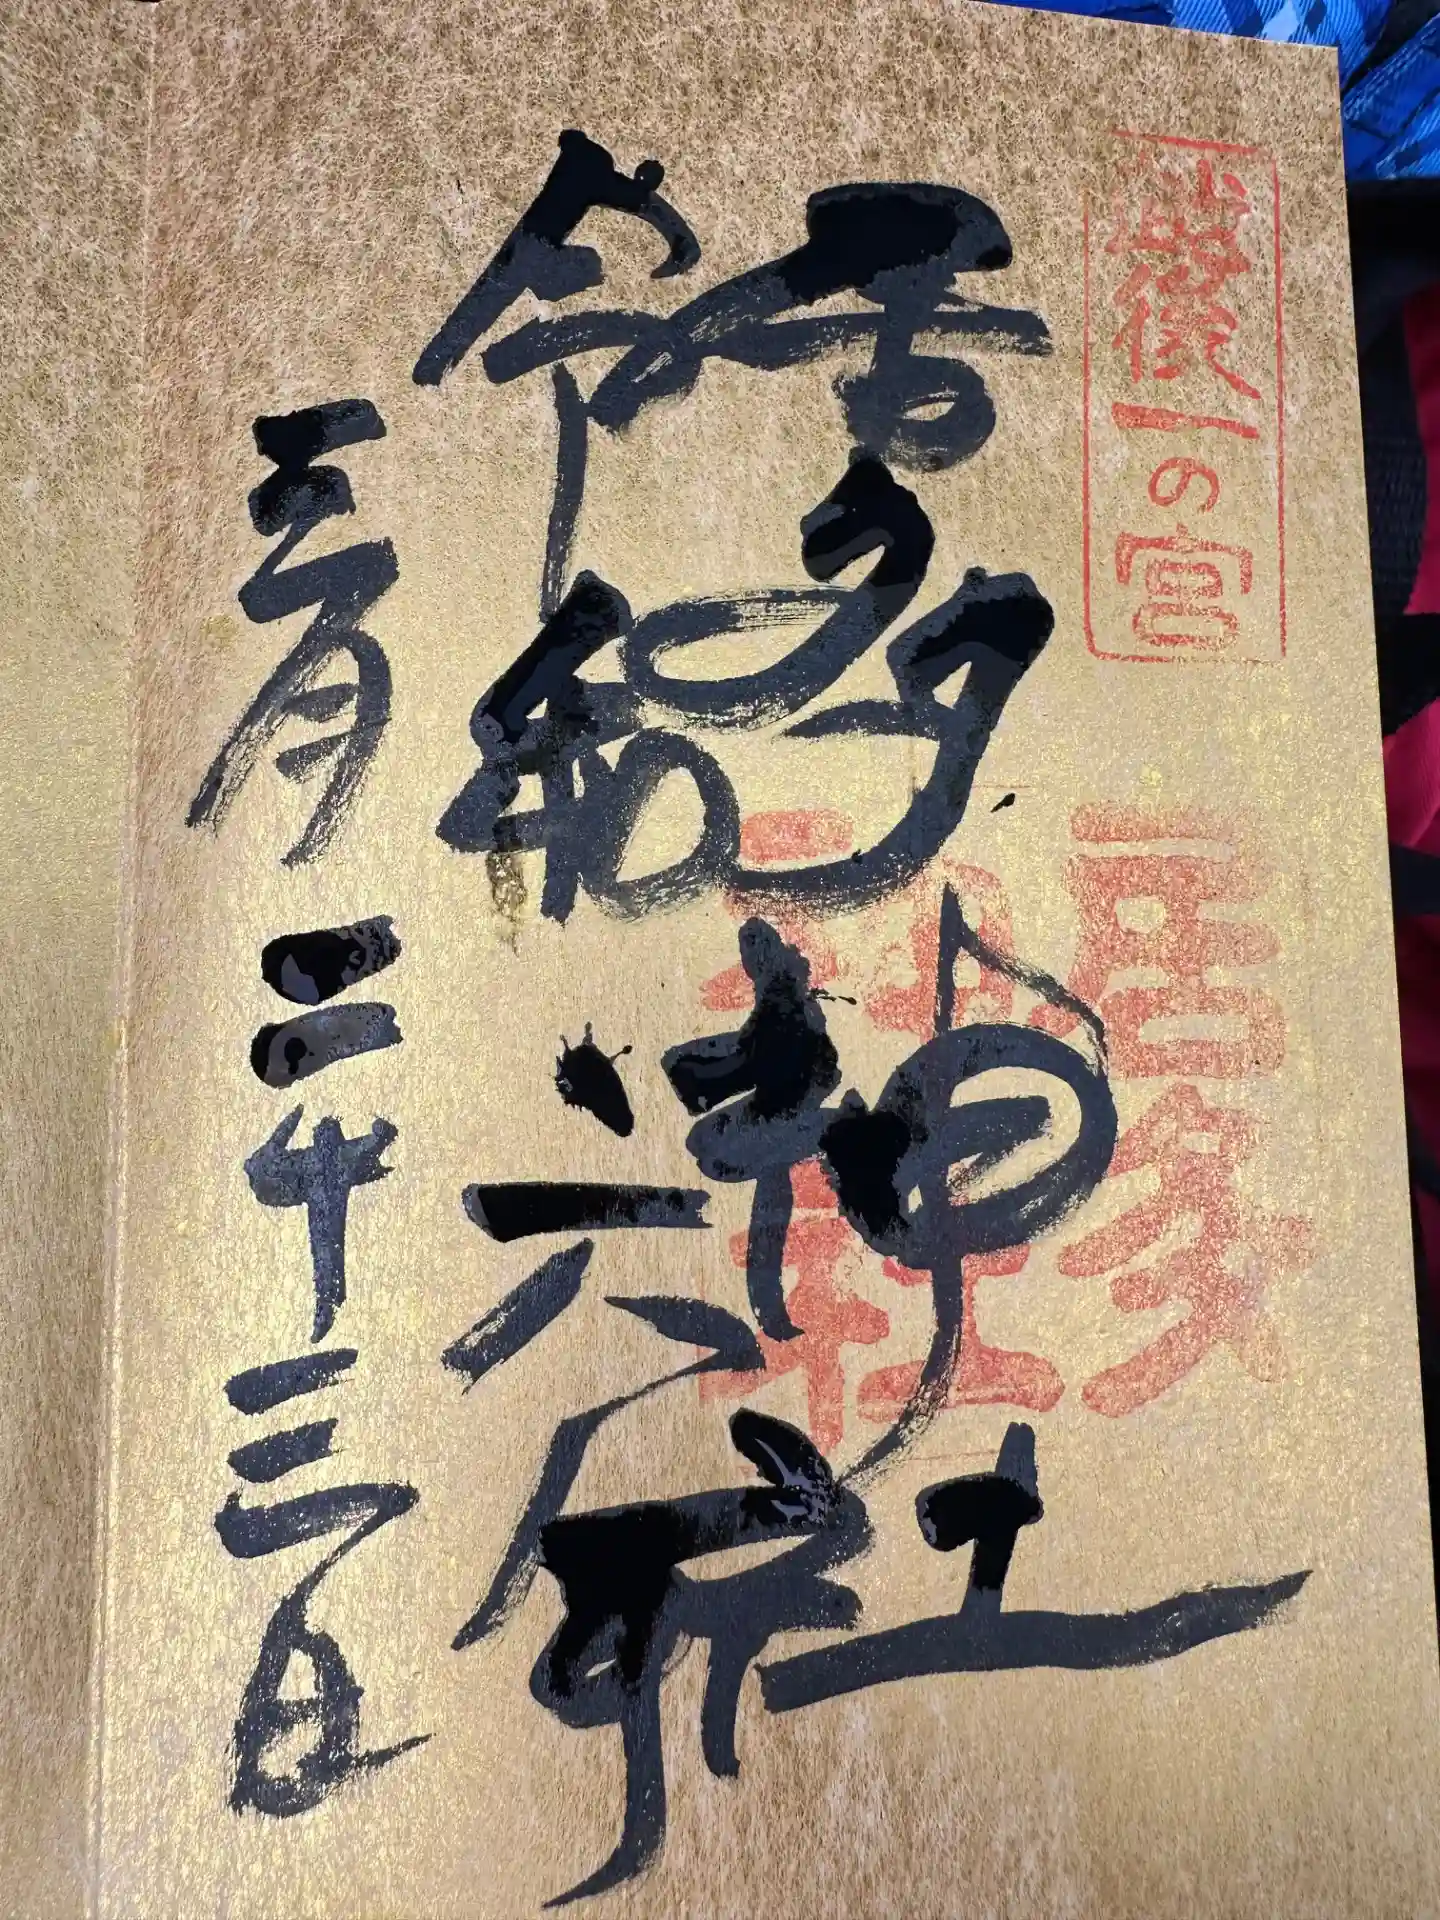 越後一の宮
居多神社
居多神社
令和六年
三月二十三日